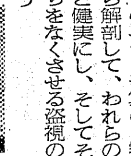 ら解剖して、われらの
と健実にし、そしてそ
らをなくさせる盗視の